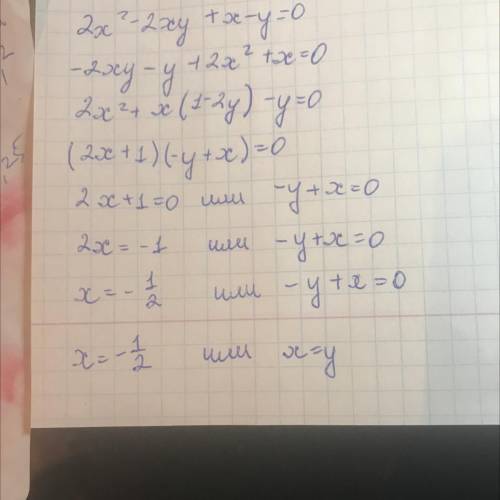 2x² - 2xy + x - y = 0
-2xy - y + 2x² + x = 0
2x² + x(1-2y) - y = 0
(2x+1)(-y+x) = 0
2x+1=0 или -y+x=0
2x = -1 или -y+x=0
x = -1/2 или -y+x=0
x = -1/2 или x=y